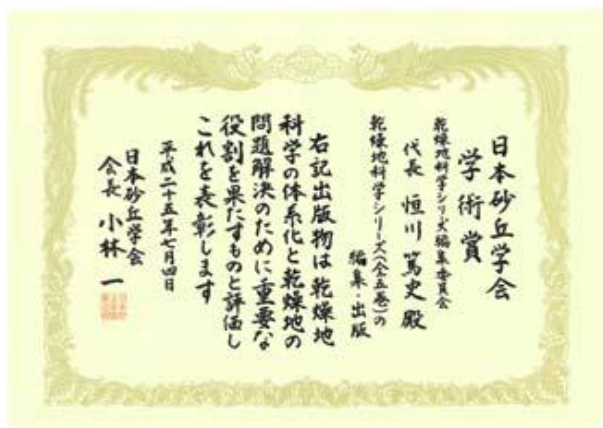 日本砂丘学会
学術賞
乾燥地科学シリーズ編集委員会
代表 恒川篤史殿
乾燥地科学シリーズ(全五巻)の
編集・出版
右記出版物は乾燥地
科学の体系化と乾燥地の
問題解決のために重要な
役割を果たすものと評価し
これを表彰します
平成二十五年七月四日
日本砂丘学会
会長 小林一